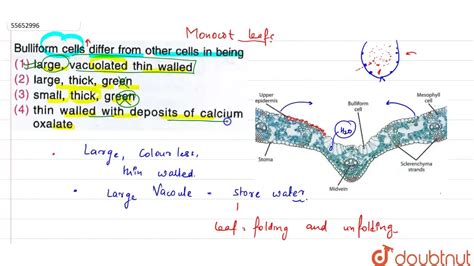 55652996
Monocot leafs
Bulliform cells differ from other cells in being
(1) large, vacuolated thin walled
(2) large, thick, green
(3) small, thick, green
(4) thin walled with deposits of calcium
oxalate
Upper
epidermis
Bulliform
cell
Mesophyll
cell
H2O
Stoma
Midvein
Sclerenchyma
strands
Large, colourless,
thin walled.
Large Vacuole = store water
leaf: folding and unfolding
doubtnut